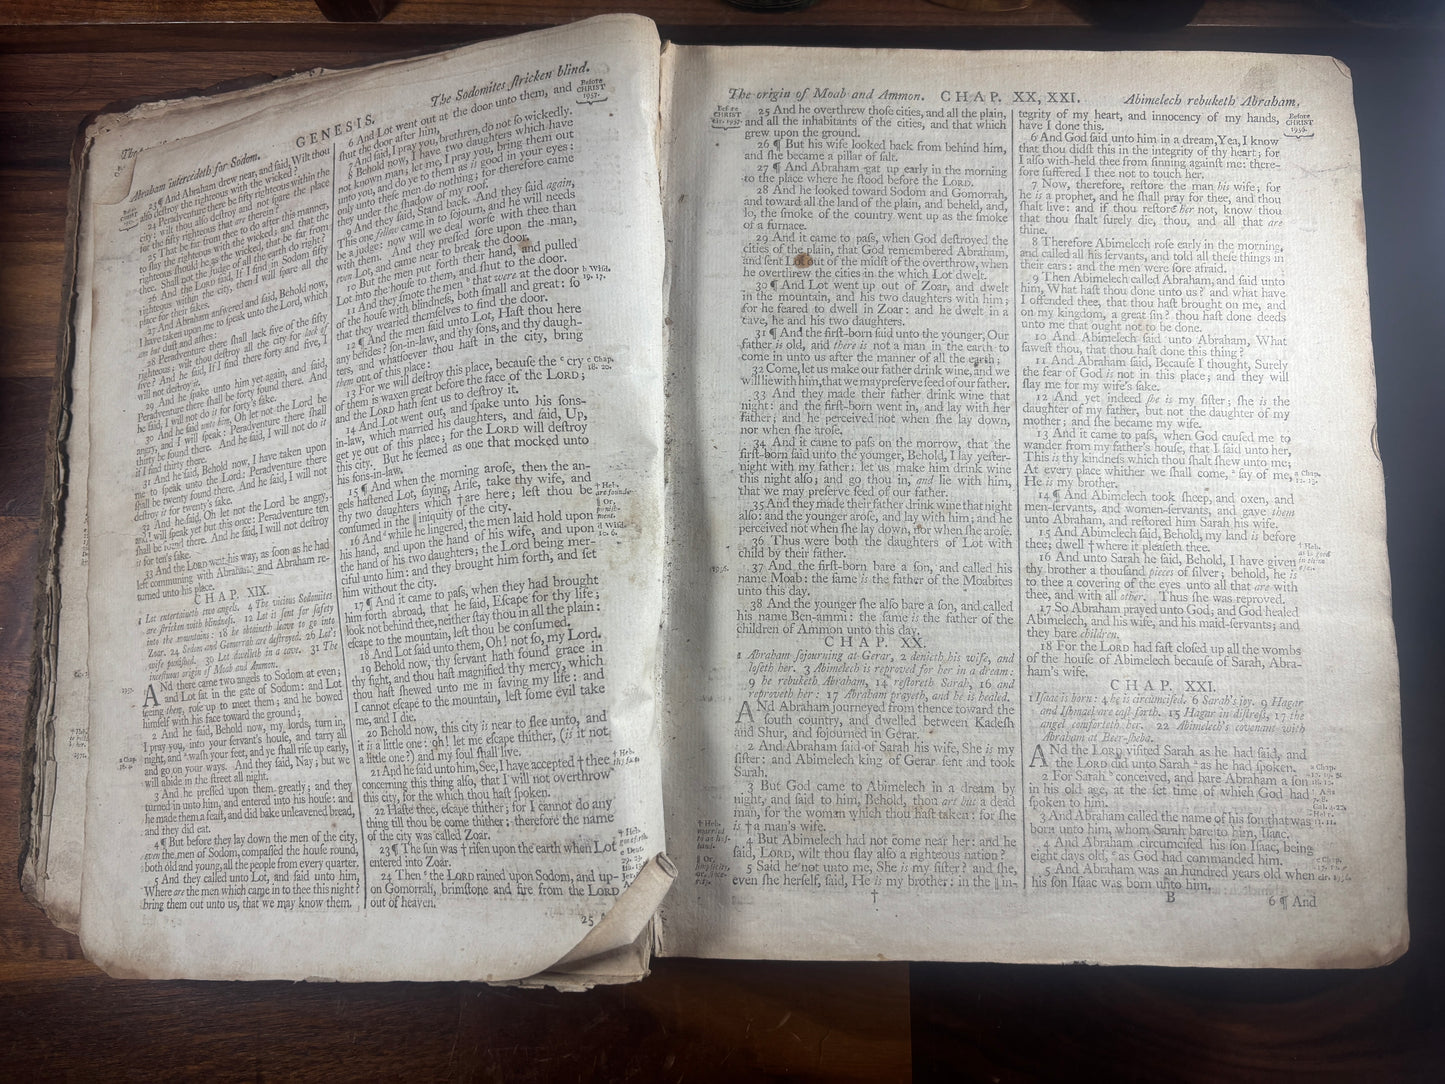 GENESIS.
The Sodomites ſtricken blind.
Abraham intercedeth for Sodom.
23 ¶ And Abraham drew near, and ſaid, Wilt thou
alſo deſtroy the righteous with the wicked?
24 Peradventure there be fifty righteous within the
city; wilt thou alſo deſtroy and not ſpare the place
for the fifty righteous that are therein?
25 That be far from thee to do after this manner,
to ſlay the righteous with the wicked; and that the
righteous ſhould be as the wicked, that be far from
thee. Shall not the Judge of all the earth do right?
26 And the LORD ſaid, If I find in Sodom fifty
righteous within the city, then I will ſpare all the
place for their ſakes.
27 And Abraham anſwered and ſaid, Behold now,
I have taken upon me to ſpeak unto the Lord, which
am but duſt and aſhes:
28 Peradventure there ſhall lack five of the fifty
righteous; wilt thou deſtroy all the city for lack of
five? And he ſaid, If I find there forty and five, I
will not deſtroy it.
29 And he ſpake unto him yet again, and ſaid,
Peradventure there ſhall be forty found there. And
he ſaid, I will not do it for forty's ſake.
30 And he ſaid unto him, Oh let not the Lord be
angry, and I will ſpeak; Peradventure there ſhall
thirty be found there. And he ſaid, I will not do it
if I find thirty there.
31 And he ſaid, Behold now, I have taken upon
me to ſpeak unto the Lord; Peradventure there
ſhall be twenty found there. And he ſaid, I will not
deſtroy it for twenty's ſake.
32 And he ſaid, Oh let not the Lord be angry,
and I will ſpeak yet but this once: Peradventure ten
ſhall be found there. And he ſaid, I will not deſtroy
it for ten's ſake.
33 And the LORD went his way, as ſoon as he had
left communing with Abraham: and Abraham re-
turned unto his place.
CHAP. XIX.
1 Lot entertaineth two angels. 4 The vicious Sodomites
are ſtricken with blindneſs. 12 Lot is ſent for ſafety
into the mountains: 18 he obtaineth leave to go into
Zoar. 24 Sodom and Gomorrah are deſtroyed. 26 Lot's
wife puniſhed. 30 Lot dwelleth in a cave. 31 The
inceſtuous origin of Moab and Ammon.
AND there came two angels to Sodom at even;
and Lot ſat in the gate of Sodom: and Lot
ſeeing them, roſe up to meet them; and he bowed
himſelf with his face toward the ground;
2 And he ſaid, Behold now, my lords, turn in,
I pray you, into your ſervant's houſe, and tarry all
night, and waſh your feet, and ye ſhall riſe up early,
and go on your ways. And they ſaid, Nay; but we
will abide in the ſtreet all night.
3 And he preſſed upon them greatly; and they
turned in unto him, and entered into his houſe: and
he made them a feaſt, and did bake unleavened bread,
and they did eat.
4 ¶ But before they lay down the men of the city,
even the men of Sodom, compaſſed the houſe round,
both old and young, all the people from every quarter.
5 And they called unto Lot, and ſaid unto him,
Where are the men which came in to thee this night?
bring them out unto us, that we may know them.
6 And Lot went out at the door unto them, and
ſhut the door after him,
7 And ſaid, I pray you, brethren, do not ſo wickedly.
8 Behold now, I have two daughters which have
not known man; let me, I pray you, bring them out
unto you, and do ye to them as is good in your eyes:
only unto theſe men do nothing; for therefore came
they under the ſhadow of my roof.
9 And they ſaid, Stand back. And they ſaid again,
This one fellow came in to ſojourn, and he will needs
be a judge: now will we deal worſe with thee than
with them. And they preſſed ſore upon the man,
even Lot, and came near to break the door.
10 But the men put forth their hand, and pulled
Lot into the houſe to them, and ſhut to the door.
11 And they ſmote the men b that were at the door
of the houſe with blindneſs, both ſmall and great: ſo
that they wearied themſelves to find the door.
12 ¶ And the men ſaid unto Lot, Haſt thou here
any beſides? ſon-in-law, and thy ſons, and thy daugh-
ters, and whatſoever thou haſt in the city, bring
them out of this place:
13 For we will deſtroy this place, becauſe the c cry
of them is waxen great before the face of the LORD;
and the LORD hath ſent us to deſtroy it.
14 And Lot went out, and ſpake unto his ſons-
in-law, which married his daughters, and ſaid, Up,
get ye out of this place; for the LORD will deſtroy
this city. But he ſeemed as one that mocked unto
his ſons-in-law.
15 ¶ And when the morning aroſe, then the an-
gels haſtened Lot, ſaying, Ariſe, take thy wife, and
thy two daughters which † are here; leſt thou be
conſumed in the ‖ iniquity of the city.
16 And d while he lingered, the men laid hold upon
his hand, and upon the hand of his wife, and upon
the hand of his two daughters; the Lord being mer-
ciful unto him: and they brought him forth, and ſet
him without the city.
17 ¶ And it came to paſs, when they had brought
him forth abroad, that he ſaid, Eſcape for thy life;
look not behind thee, neither ſtay thou in all the plain:
eſcape to the mountain, leſt thou be conſumed.
18 And Lot ſaid unto them, Oh! not ſo, my Lord.
19 Behold now, thy ſervant hath found grace in
thy ſight, and thou haſt magnified thy mercy, which
thou haſt ſhewed unto me in ſaving my life: and
I cannot eſcape to the mountain, leſt ſome evil take
me, and I die.
20 Behold now, this city is near to flee unto, and
it is a little one: oh! let me eſcape thither, (is it not
a little one?) and my ſoul ſhall live.
21 And he ſaid unto him, See, I have accepted † thee
concerning this thing alſo, that I will not overthrow
this city, for the which thou haſt ſpoken.
22 Haſte thee, eſcape thither; for I cannot do any
thing till thou be come thither: therefore the name
of the city was called Zoar.
23 ¶ The ſun was † riſen upon the earth when Lot
entered into Zoar.
24 Then e the LORD rained upon Sodom, and up-
on Gomorrah, brimſtone and fire from the LORD
out of heaven.
25
Before
CHRIST
1937.
b Wiſd.
19. 17.
c Chap.
18. 20.
† Heb.
are found.
‖ Or,
puniſh-
ment.
d Wiſd.
10. 6.
† Heb.
thy face.
† Heb.
gone forth.
e Deut.
The origin of Moab and Ammon.
CHAP. XX, XXI.
Abimelech rebuketh Abraham.
Before
CHRIST
cir. 1937.
25 And he overthrew thoſe cities, and all the plain,
and all the inhabitants of the cities, and that which
grew upon the ground.
26 ¶ But his wife looked back from behind him,
and ſhe became a pillar of ſalt.
27 ¶ And Abraham gat up early in the morning
to the place where he ſtood before the LORD.
28 And he looked toward Sodom and Gomorrah,
and toward all the land of the plain, and beheld, and,
lo, the ſmoke of the country went up as the ſmoke
of a furnace.
29 And it came to paſs, when God deſtroyed the
cities of the plain, that God remembered Abraham,
and ſent Lot out of the midſt of the overthrow, when
he overthrew the cities in the which Lot dwelt.
30 ¶ And Lot went up out of Zoar, and dwelt
in the mountain, and his two daughters with him;
for he feared to dwell in Zoar: and he dwelt in a
cave, he and his two daughters.
31 ¶ And the firſt-born ſaid unto the younger, Our
father is old, and there is not a man in the earth to
come in unto us after the manner of all the earth;
32 Come, let us make our father drink wine, and we
will lie with him, that we may preſerve ſeed of our father.
33 And they made their father drink wine that
night: and the firſt-born went in, and lay with her
father; and he perceived not when ſhe lay down,
nor when ſhe aroſe.
34 And it came to paſs on the morrow, that the
firſt-born ſaid unto the younger, Behold, I lay yeſter-
night with my father: let us make him drink wine
this night alſo; and go thou in, and lie with him,
that we may preſerve ſeed of our father.
35 And they made their father drink wine that night
alſo: and the younger aroſe, and lay with him; and he
perceived not when ſhe lay down, nor when ſhe aroſe.
36 Thus were both the daughters of Lot with
child by their father.
37 And the firſt-born bare a ſon, and called his
name Moab: the ſame is the father of the Moabites
unto this day.
38 And the younger ſhe alſo bare a ſon, and called
his name Ben-ammi: the ſame is the father of the
children of Ammon unto this day.
CHAP. XX.
1 Abraham ſojourning at Gerar, 2 denieth his wife, and
loſeth her. 3 Abimelech is reproved for her in a dream:
9 he rebuketh Abraham, 14 reſtoreth Sarah, 16 and
reproveth her: 17 Abraham prayeth, and he is healed.
AND Abraham journeyed from thence toward the
ſouth country, and dwelled between Kadeſh
and Shur, and ſojourned in Gerar.
2 And Abraham ſaid of Sarah his wife, She is my
ſiſter: and Abimelech king of Gerar ſent and took
Sarah.
3 But God came to Abimelech in a dream by
night, and ſaid to him, Behold, thou art but a dead
man, for the woman which thou haſt taken: for ſhe
is † a man's wife.
4 But Abimelech had not come near her: and he
ſaid, LORD, wilt thou ſlay alſo a righteous nation?
5 Said he not unto me, She is my ſiſter? and ſhe,
even ſhe herſelf, ſaid, He is my brother: in the ‖ in-
†
† Heb.
married
to an huſ-
band.
‖ Or,
ſimplicity,
or, ſince-
rity.
tegrity of my heart, and innocency of my hands,
have I done this.
6 And God ſaid unto him in a dream, Yea, I know
that thou didſt this in the integrity of thy heart; for
I alſo with-held thee from ſinning againſt me: there-
fore ſuffered I thee not to touch her.
7 Now, therefore, reſtore the man his wife; for
he is a prophet, and he ſhall pray for thee, and thou
ſhalt live: and if thou reſtore her not, know thou
that thou ſhalt ſurely die, thou, and all that are
thine.
8 Therefore Abimelech roſe early in the morning,
and called all his ſervants, and told all theſe things in
their ears: and the men were ſore afraid.
9 Then Abimelech called Abraham, and ſaid unto
him, What haſt thou done unto us? and what have
I offended thee, that thou haſt brought on me, and
on my kingdom, a great ſin? thou haſt done deeds
unto me that ought not to be done.
10 And Abimelech ſaid unto Abraham, What
ſaweſt thou, that thou haſt done this thing?
11 And Abraham ſaid, Becauſe I thought, Surely
the fear of God is not in this place; and they will
ſlay me for my wife's ſake.
12 And yet indeed ſhe is my ſiſter; ſhe is the
daughter of my father, but not the daughter of my
mother; and ſhe became my wife.
13 And it came to paſs, when God cauſed me to
wander from my father's houſe, that I ſaid unto her,
This is thy kindneſs which thou ſhalt ſhew unto me;
At every place whither we ſhall come, a ſay of me,
He is my brother.
14 ¶ And Abimelech took ſheep, and oxen, and
men-ſervants, and women-ſervants, and gave them
unto Abraham, and reſtored him Sarah his wife.
15 And Abimelech ſaid, Behold, my land is before
thee; dwell † where it pleaſeth thee.
16 And unto Sarah he ſaid, Behold, I have given
thy brother a thouſand pieces of ſilver; behold, he is
to thee a covering of the eyes unto all that are with
thee, and with all other. Thus ſhe was reproved.
17 So Abraham prayed unto God; and God healed
Abimelech, and his wife, and his maid-ſervants; and
they bare children.
18 For the LORD had faſt cloſed up all the wombs
of the houſe of Abimelech becauſe of Sarah, Abra-
ham's wife.
CHAP. XXI.
1 Iſaac is born: 4 he is circumciſed. 6 Sarah's joy. 9 Hagar
and Iſhmael are caſt forth. 15 Hagar in diſtreſs, 17 the
angel comforteth her. 22 Abimelech's covenant with
Abraham at Beer-ſheba.
AND the LORD viſited Sarah as he had ſaid, and
the LORD did unto Sarah a as he had ſpoken.
2 For Sarah b conceived, and bare Abraham a ſon
in his old age, at the ſet time of which God had
ſpoken to him.
3 And Abraham called the name of his ſon that was
born unto him, whom Sarah bare to him, Iſaac.
4 And Abraham circumciſed his ſon Iſaac, being
eight days old, c as God had commanded him.
5 And Abraham was an hundred years old when
his ſon Iſaac was born unto him.
B
6 ¶ And
Before
CHRIST
1936.
a Chap.
12. 13.
† Heb.
as is good
in thine
eyes.